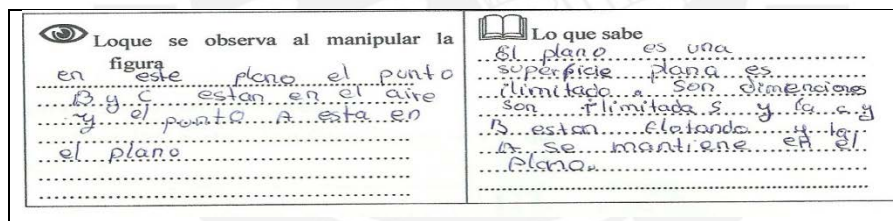 Loque se observa al manipular la
figura
en este plano el punto
B y C estan en el aire
y el punto A esta en
el plano
Lo que sabe
El plano es una
superficie plana es
ilimitado. Son dimenciones
son ilimitadas y la c y
B estan flotando y la
A se mantiene en el
plano.